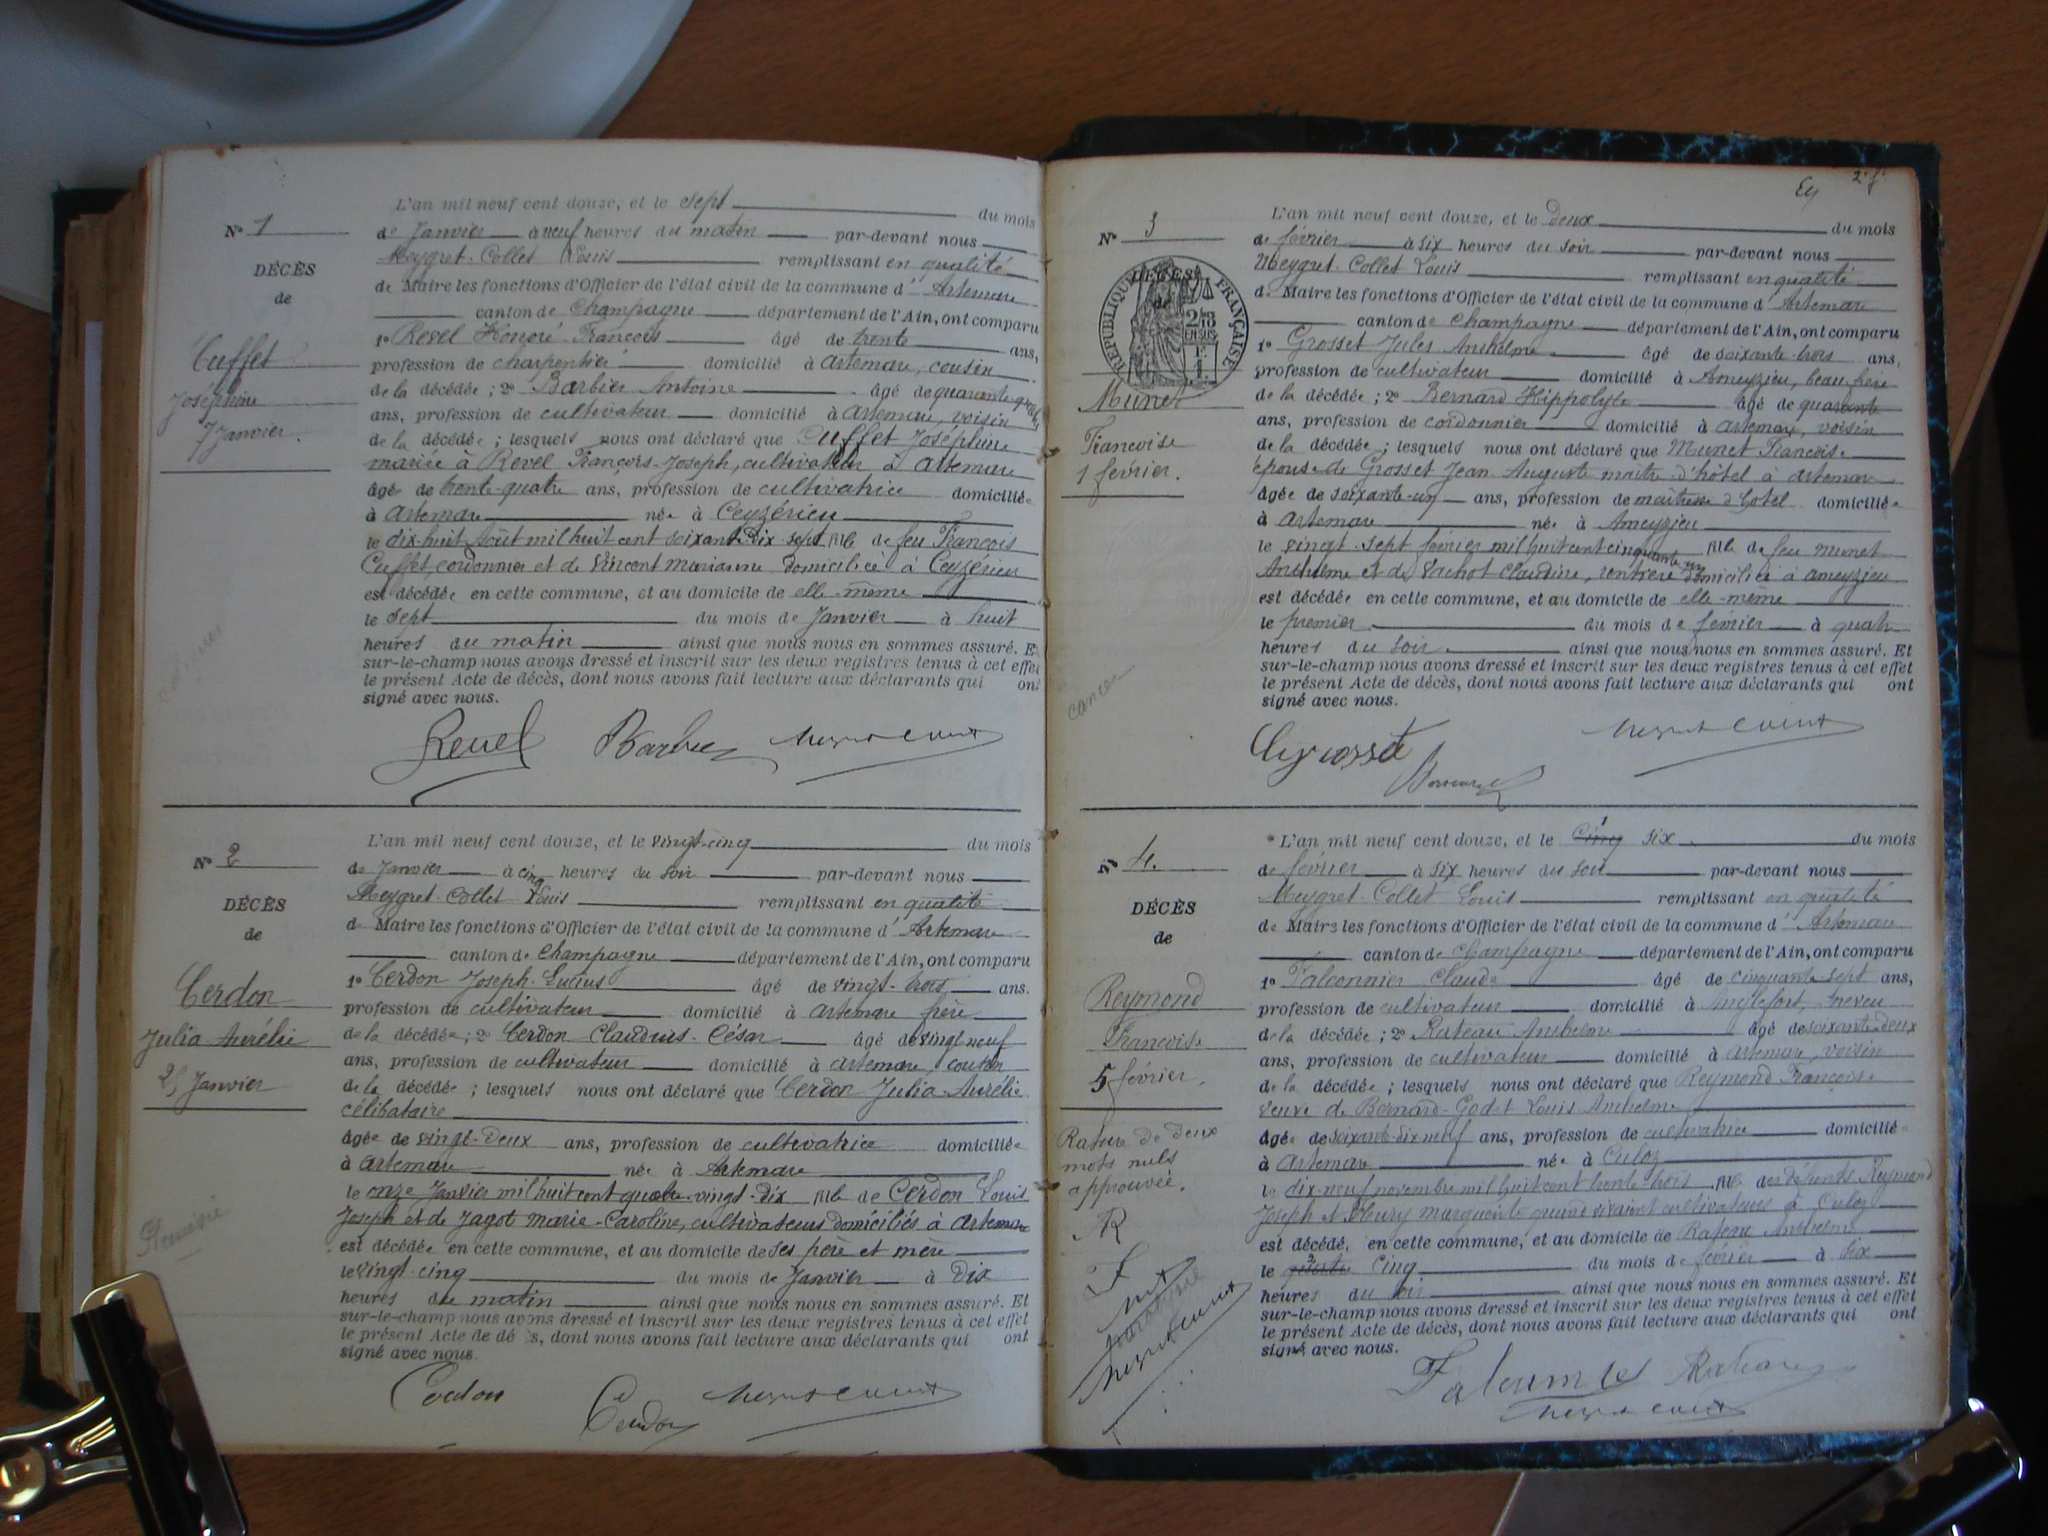 L'an mil neuf cent douze, et le sept du mois
N° 1
de Janvier à neuf heures du matin par-devant nous
Meygret-Collet Louis remplissant en qualité
DÉCÈS
de Maire les fonctions d'Officier de l'état civil de la commune d' Artemare
de
canton de Champagne département de l'Ain, ont comparu
1° Revel Honoré François âgé de trente ans,
Cuffet
profession de charpentier domicilié à Artemare, cousin
Joséphine
de la décédée ; 2° Barbier Antoine âgé de quarante-
7 Janvier.
ans, profession de cultivateur domicilié à Artemare, voisin
de la décédée ; lesquels nous ont déclaré que Cuffet Joséphine
mariée à Revel François-Joseph, cultivateur à Artemare
âgée de trente-quatre ans, profession de cultivatrice domiciliée
à Artemare née à Ceyzérieu
le dix-huit Août mil huit cent soixante-dix-sept fille de feu François
Cuffet, cordonnier et de Vincent Marianne domiciliée à Ceyzérieu
est décédée en cette commune, et au domicile de elle-même
le sept du mois de Janvier à huit
heures du matin ainsi que nous nous en sommes assuré. Et
sur-le-champ nous avons dressé et inscrit sur les deux registres tenus à cet effet
le présent Acte de décès, dont nous avons fait lecture aux déclarants qui ont
signé avec nous.
Revel Barbier
L'an mil neuf cent douze, et le vingt-cinq du mois
N° 2
de Janvier à cinq heures du soir par-devant nous
Meygret-Collet Louis remplissant en qualité
DÉCÈS
de Maire les fonctions d'Officier de l'état civil de la commune d' Artemare
de
canton de Champagne département de l'Ain, ont comparu
1° Cerdon Joseph-Lucius âgé de vingt-trois ans.
Cerdon
profession de cultivateur domicilié à Artemare frère
Julia Aurélie
de la décédée ; 2° Cerdon Claudius-César âgé de vingt neuf
25 Janvier
ans, profession de cultivateur domicilié à Artemare cousin
de la décédée ; lesquels nous ont déclaré que Cerdon Julia-Aurélie
célibataire
âgée de vingt-deux ans, profession de cultivatrice domiciliée
à Artemare née à Artemare
le onze Janvier mil huit cent quatre-vingt-dix fille de Cerdon Louis
Joseph et de Jagot Marie-Caroline, cultivateurs domiciliés à Artemare
est décédée en cette commune, et au domicile de ses père et mère
le vingt-cinq du mois de Janvier à dix
heures du matin ainsi que nous nous en sommes assuré. Et
sur-le-champ nous avons dressé et inscrit sur les deux registres tenus à cet effet
le présent Acte de décès, dont nous avons fait lecture aux déclarants qui ont
signé avec nous.
Cerdon Cerdon
2e f.
L'an mil neuf cent douze, et le deux du mois
N° 3
de février à six heures du soir par-devant nous
Meygret-Collet Louis remplissant en qualité
DÉCÈS
de
RÉPUBLIQUE FRANÇAISE
de Maire les fonctions d'Officier de l'état civil de la commune d' Artemare
canton de Champagne département de l'Ain, ont comparu
1° Grosset Jules Anthelme âgé de soixante-trois ans,
profession de cultivateur domicilié à Ameyzieu, beau-frère
Munet
de la décédée ; 2° Bernard Hippolyte âgé de quarante
ans, profession de cordonnier domicilié à Artemare, voisin
Françoise
de la décédée ; lesquels nous ont déclaré que Munet Françoise
1 février.
épouse de Grosset Jean-Auguste maître d'hôtel à Artemare
âgée de soixante-un ans, profession de maîtresse d'hôtel domiciliée
à Artemare née à Ameyzieu
le vingt-sept février mil huit cent cinquante un fille de feu Munet
Anthelme et de Vachot Claudine, rentière domiciliée à Ameyzieu
est décédée en cette commune, et au domicile de elle-même
le premier du mois de février à quatre
heures du soir ainsi que nous nous en sommes assuré. Et
sur-le-champ nous avons dressé et inscrit sur les deux registres tenus à cet effet
cancer
le présent Acte de décès, dont nous avons fait lecture aux déclarants qui ont
signé avec nous.
L'an mil neuf cent douze, et le cinq six du mois
N° 4.
de février à six heures du soir par-devant nous
Meygret-Collet Louis remplissant en qualité
DÉCÈS
de Maire les fonctions d'Officier de l'état civil de la commune d' Artemare
de
canton de Champagne département de l'Ain, ont comparu
1° Falconnier Claude âgé de cinquante-sept ans,
Reymond
profession de cultivateur domicilié à Anglefort, neveu
Françoise
de la décédée ; 2° Rateau Anthelme âgé de soixante-deux
5 février.
ans, profession de cultivateur domicilié à Artemare, voisin
de la décédée ; lesquels nous ont déclaré que Reymond Françoise
veuve de Bernard-Godet Louis Anthelme
Rature de deux
mots nuls
approuvée.
R
F
âgée de soixante-dix neuf ans, profession de cultivatrice domiciliée
à Artemare née à Culoz
le dix-neuf novembre mil huit cent trente-trois fille des défunts Reymond
Joseph et Fleury Marguerite quand vivaient cultivateurs à Culoz
est décédée en cette commune, et au domicile de Rateau Anthelme
le cinq du mois de février à six
heures du soir ainsi que nous nous en sommes assuré. Et
sur-le-champ nous avons dressé et inscrit sur les deux registres tenus à cet effet
le présent Acte de décès, dont nous avons fait lecture aux déclarants qui ont
signé avec nous.
Rateau